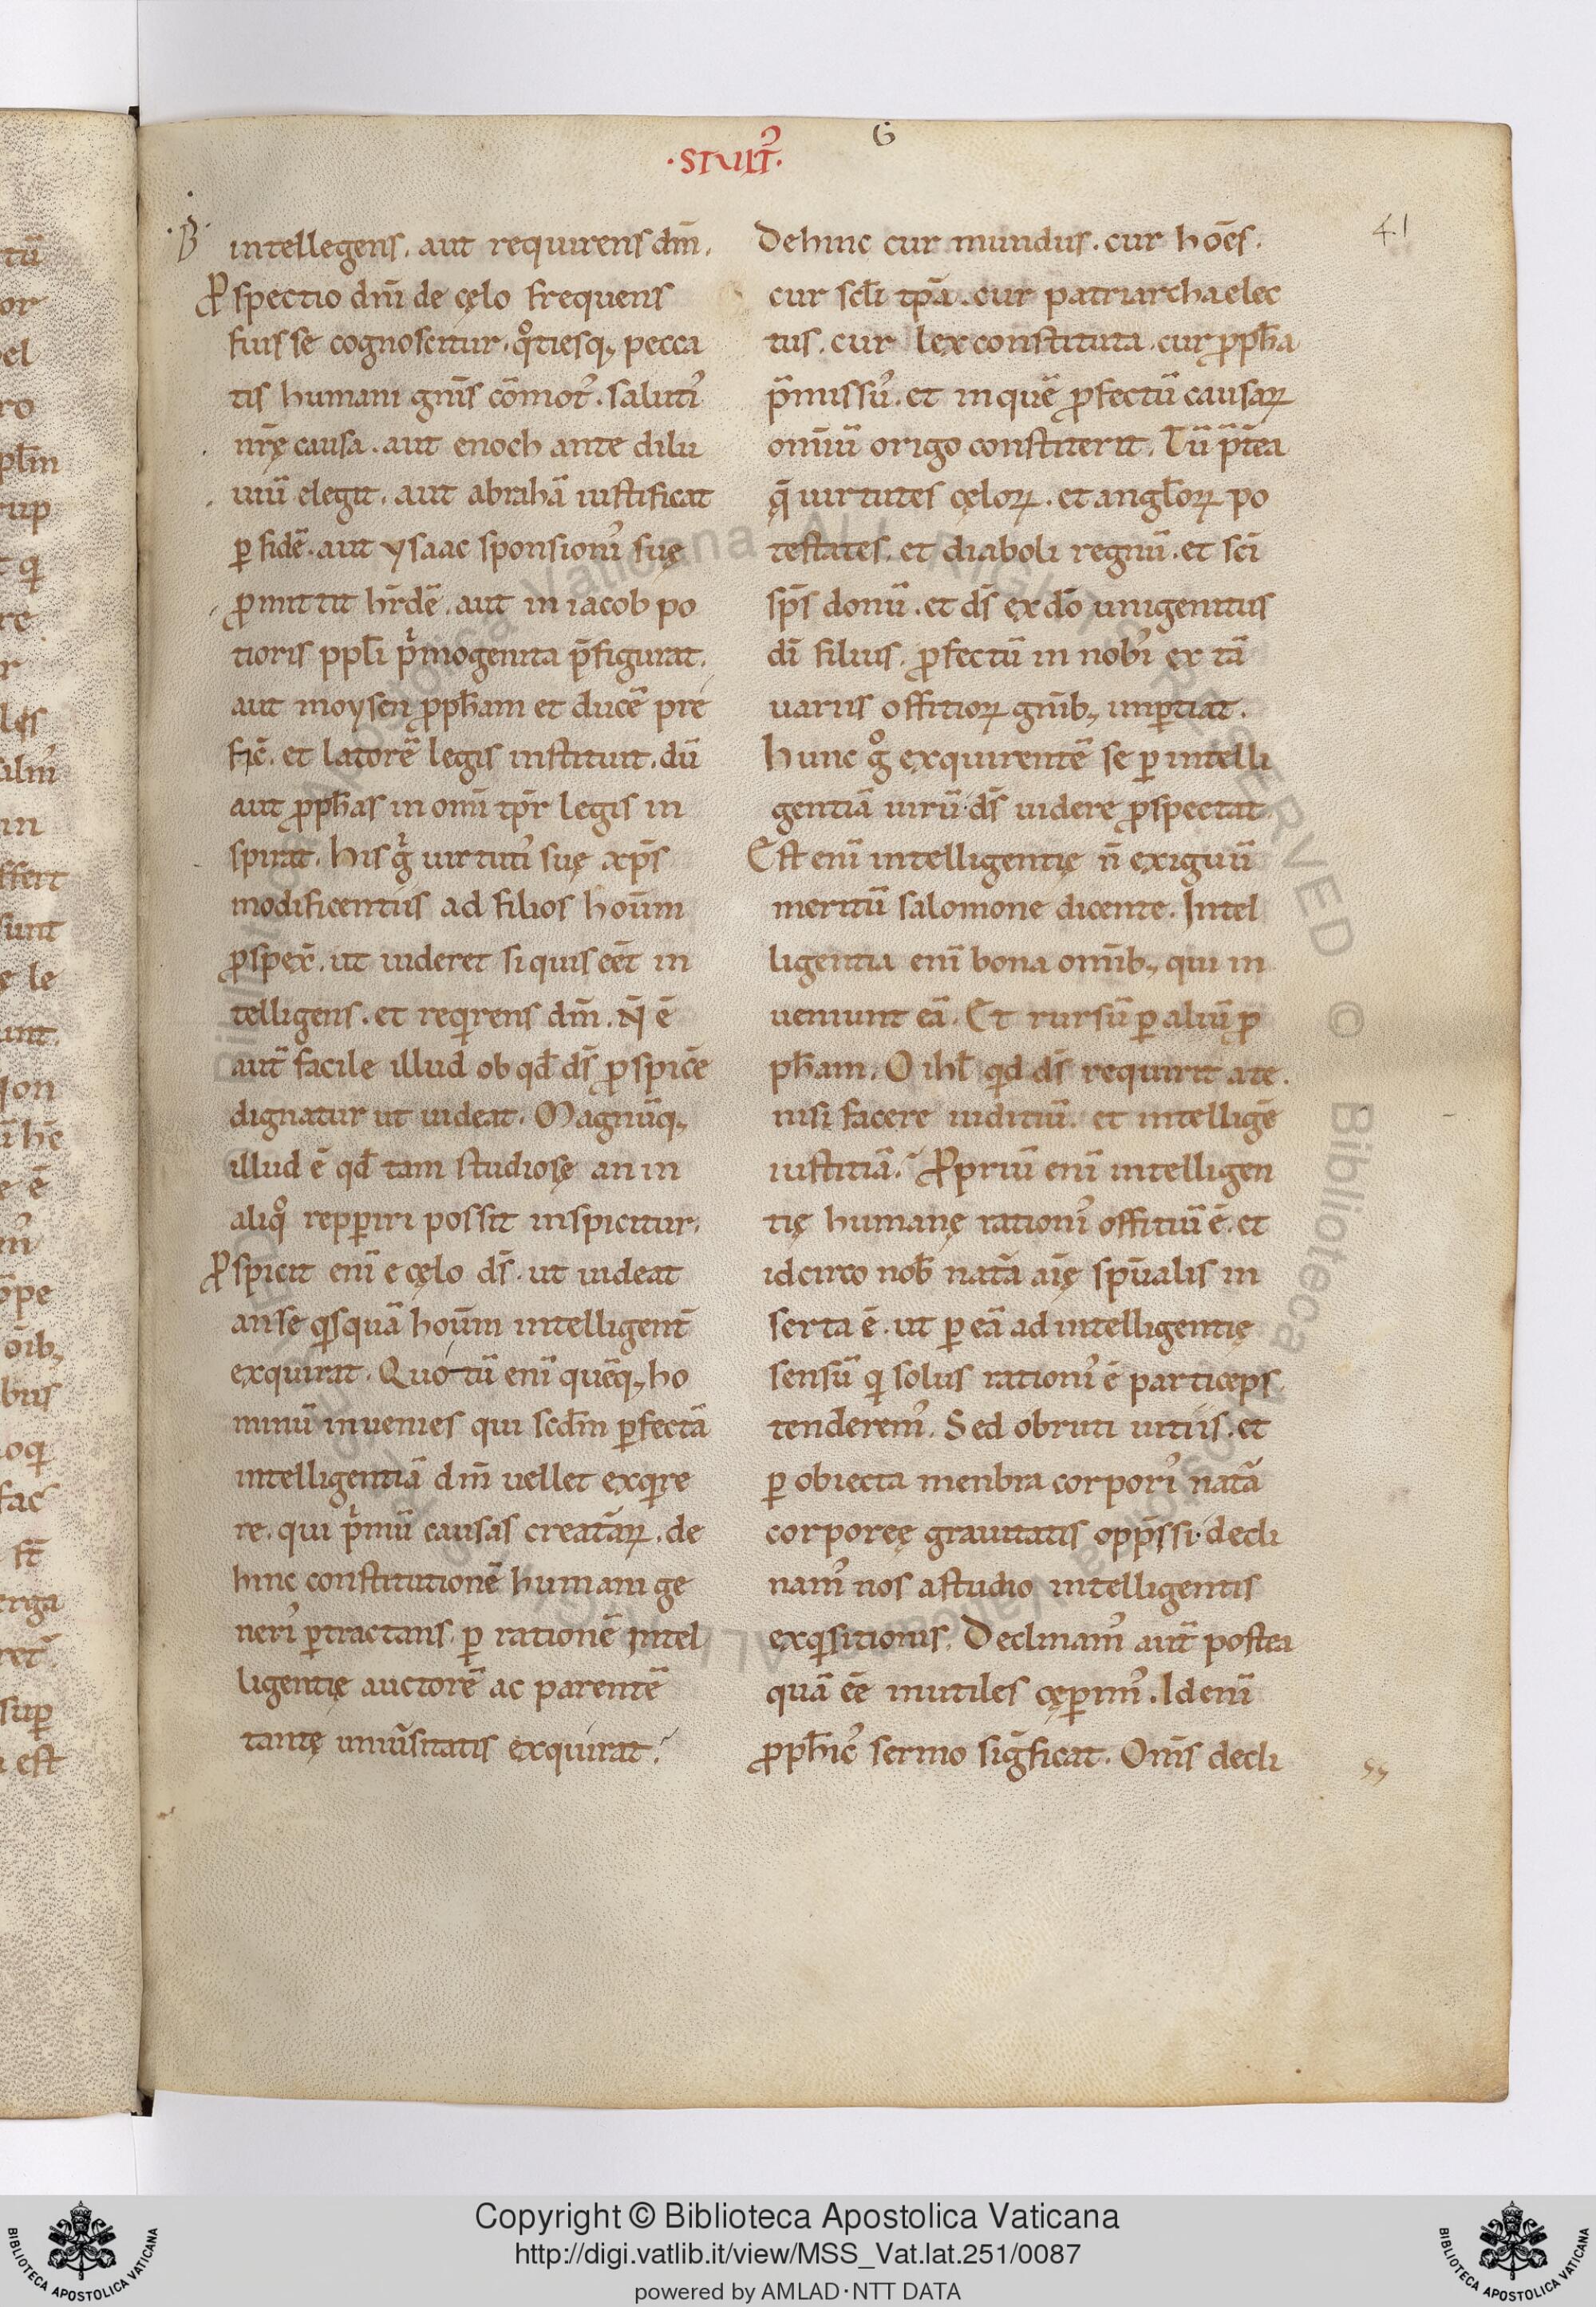 ·STVLTꝰ·
G
41
·B·
intellegens. aut requirens dm̄.
Ꝓspectio dnī de cęlo frequens
fuisse cognoscitur. qͦtiesq; pecca
tis humani gnīs cōmotꝰ. salutꝭ
nr̄ę causa. aut enoch ante dilu
uiū elegit. aut abrahā iustificat
ꝑ fidē. aut ysaac sponsionꝭ suę
ꝓmittit hr̄dē. aut in iacob po
tioris ppl̄i pͥmogenita p̄figurat.
aut moysen ꝓph̄am et ducē pre
fic̄. et latorē legis instituit. dū
aut ꝓph̄as in omī tpr̄ legis in
spirat. his gͥ uirtutꝭ suę xp̄s
modificentiis ad filios hoūm
ꝓspex̄. ut uideret si quis eēt in
telligens. et reqͥrens dm̄. N̄ ē
aut̄ facile illud ob qd̄ ds̄ ꝓspic̄e
dignatur ut uideat. Magnūq;
illud ē qd̄ tam studiosę an in
aliqͦ repꝑiri possit inspicitur.
Ꝓspicit enī e cęlo ds̄. ut uideat
an se qͥsquā hoūm intelligent̄
exquirat. Quotū enī quēq; ho
minū inuenies qui scdm̄ ꝑfectā
intelligentiā dm̄ uellet exqͥre
re. qui pͥmū causas creatāꝝ. de
hinc constitutionē humani ge
nerꝭ ꝑtractans. ꝑ rationē intel
ligentię auctorē ac parentē
tantę uniūsitatis exquirat.
Dehinc cur mundus. cur hoēs.
cur scl̄i tp̄a. cur patriarcha elec
tus. cur lex constituta. cur ꝓph̄a
p̄missꝰ. et in quē ꝓfectū causaꝝ
omīū origo constiterit. Tū p̄tea
q̄ uirtutes cęloꝝ. et angl̄oꝝ po
testates. et diaboli regnū. et scī
sps̄ donū. et ds̄ ex dō unigenitus
dī filius. ꝓfectū in nobꝭ ex tā
uariis offitioꝝ gnīb; imꝑtiat.
Hunc gͦ exquirentē se ꝑ intelli
gentiā uirū. ds̄ uidere ꝓspectat
Est enī intelligentię n̄ exiguū
meritū salomone dicente. Intel
ligentia enī bona omīb; qui in
ueniunt eā. Et rursū ꝑ aliū ꝓ
ph̄am. O ihl̄ qͥd ds̄ requirit a te.
nisi facere iuditiū. et intelligē
iustitiā. Ꝓpriū enī intelligen
tię humanę rationꝭ offitiū ē. et
idcirco nob̄ natā aīę spūalis in
serta ē. ut ꝑ eā ad intelligentię
sensū qͥ solus rationꝭ ē particeps
tenderemꝰ. Sed obruti uitiis. et
ꝑ obiecta menbra corporꝭ natā
corporeę grauitatis opp̄ssi. decli
namꝰ nos a studio intelligentis
exqͥsitionis. Declinamꝰ aut̄ postea
quā eē inutiles cępimꝰ. Id enī
ꝓph̄icꝰ sermo sigͥficat. Omīs decli